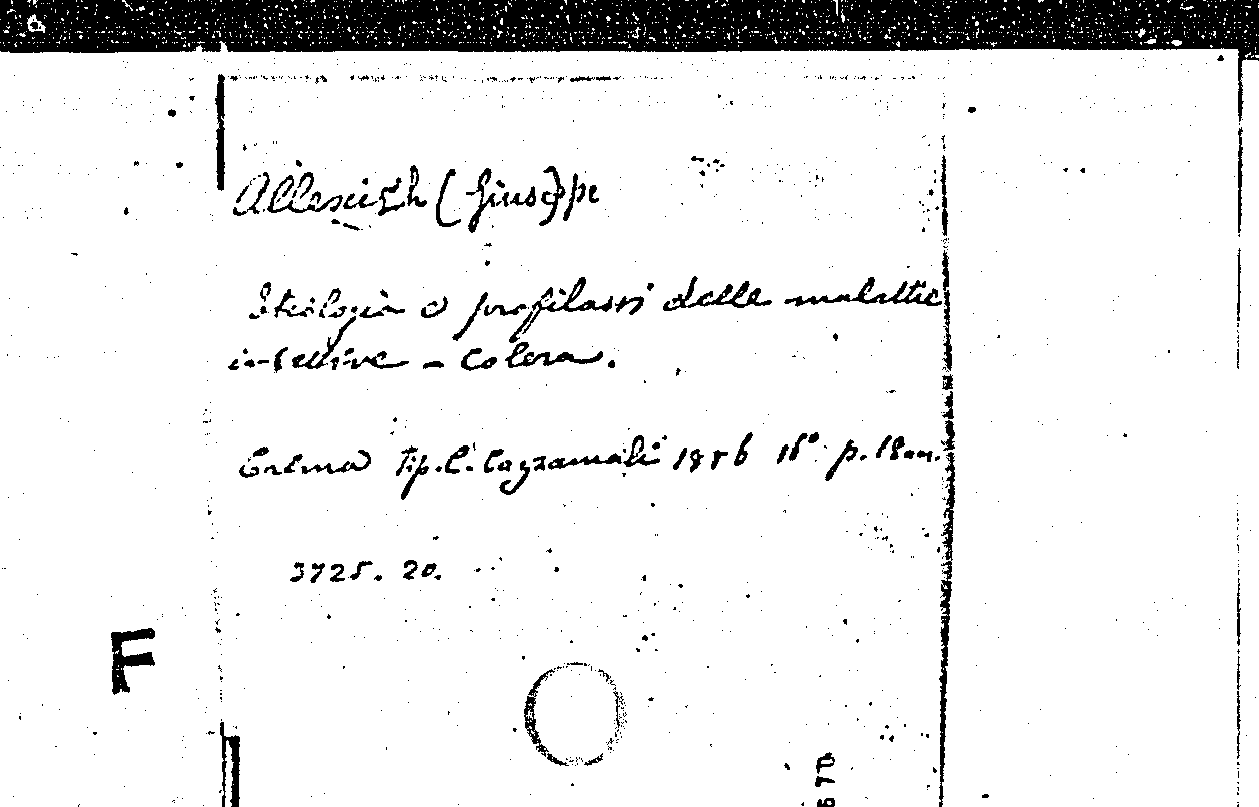 (Giuseppe)
Etiologia e profilassi delle malattie
infettive - Colera.
Crema Tip. C. Cazzamali 1886 16° p. 18
3725. 20.
F
67D